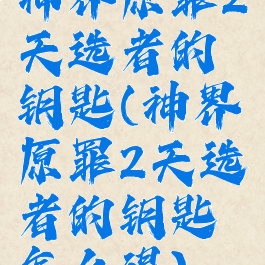 神界原罪2
天选者的
钥匙(神界
原罪2天选
者的钥匙
怎么得)